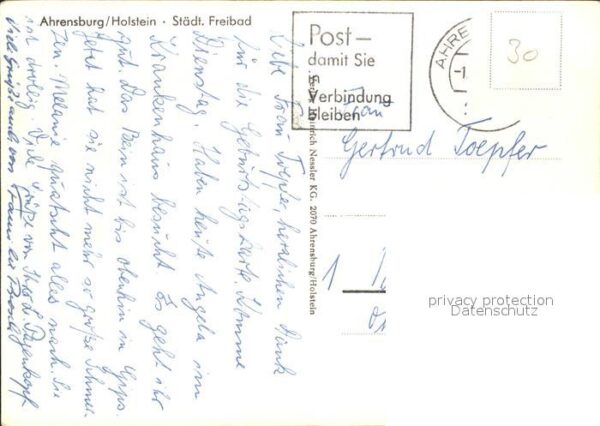 Ahrensburg/Holstein · Städt. Freibad
Post –
damit Sie
in
Verbindung
bleiben
AHRE
30
Frau
Gertrud Toepfer
1
Heinrich Nessler KG. 2070 Ahrensburg/Holstein
privacy protection
Datenschutz
Liebe Frau Toepfer, herzlichen Dank
für die Geburtstagskarte. Komme
Dienstag. Haben heute Angela im
Krankenhaus besucht. Es geht ihr
gut. Das Bein ist bis obenhin in Gips.
Jetzt hat sie nicht mehr so große Schmer-
zen. Melanie quatscht alles nach. Sie
ist drollig. Viele Grüße von Ihrer
Viele Grüße auch von Familie